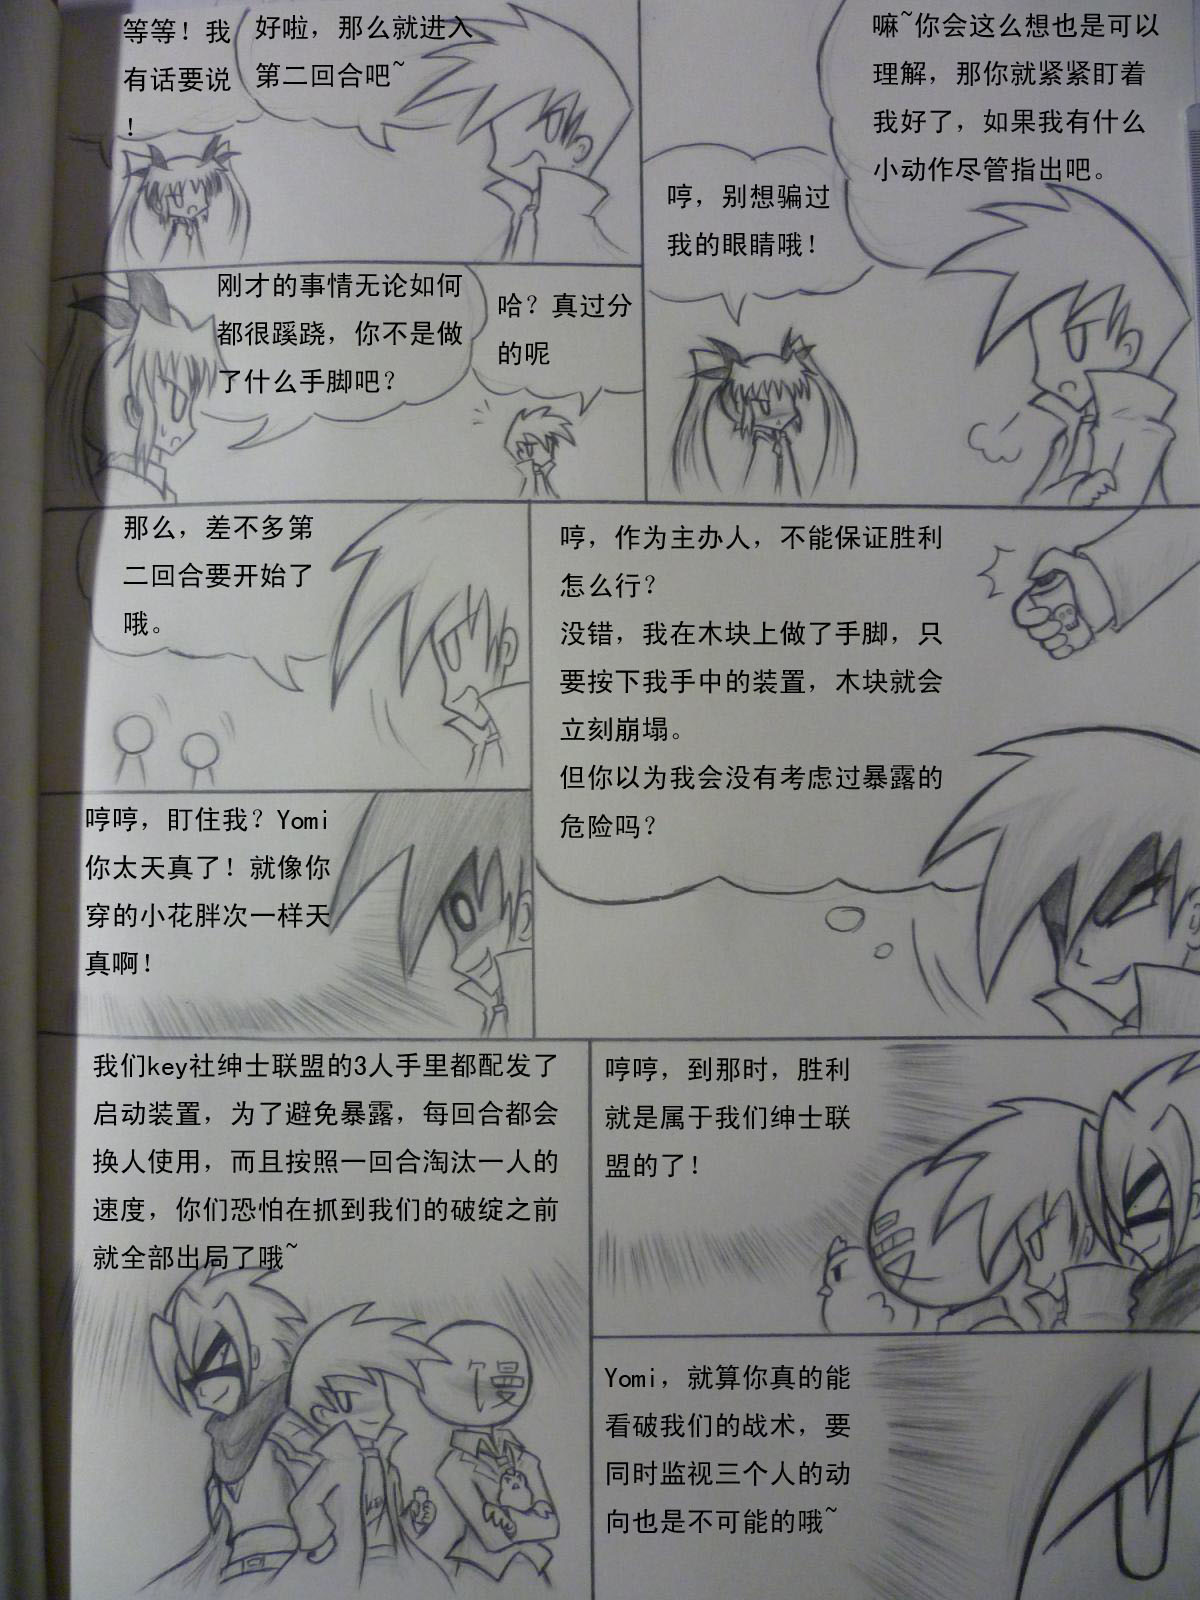 好啦，那么就进入
第二回合吧~
等等！我
有话要说
！
刚才的事情无论如何
都很蹊跷，你不是做
了什么手脚吧？
哈？真过分
的呢
嘛~你会这么想也是可以
理解，那你就紧紧盯着
我好了，如果我有什么
小动作尽管指出吧。
哼，别想骗过
我的眼睛哦！
那么，差不多第
二回合要开始了
哦。
哼，作为主办人，不能保证胜利
怎么行？
没错，我在木块上做了手脚，只
要按下我手中的装置，木块就会
立刻崩塌。
但你以为我会没有考虑过暴露的
危险吗？
哼哼，盯住我？Yomi
你太天真了！就像你
穿的小花胖次一样天
真啊！
我们key社绅士联盟的3人手里都配发了
启动装置，为了避免暴露，每回合都会
换人使用，而且按照一回合淘汰一人的
速度，你们恐怕在抓到我们的破绽之前
就全部出局了哦~
馒
哼哼，到那时，胜利
就是属于我们绅士联
盟的了！
Yomi，就算你真的能
看破我们的战术，要
同时监视三个人的动
向也是不可能的哦~